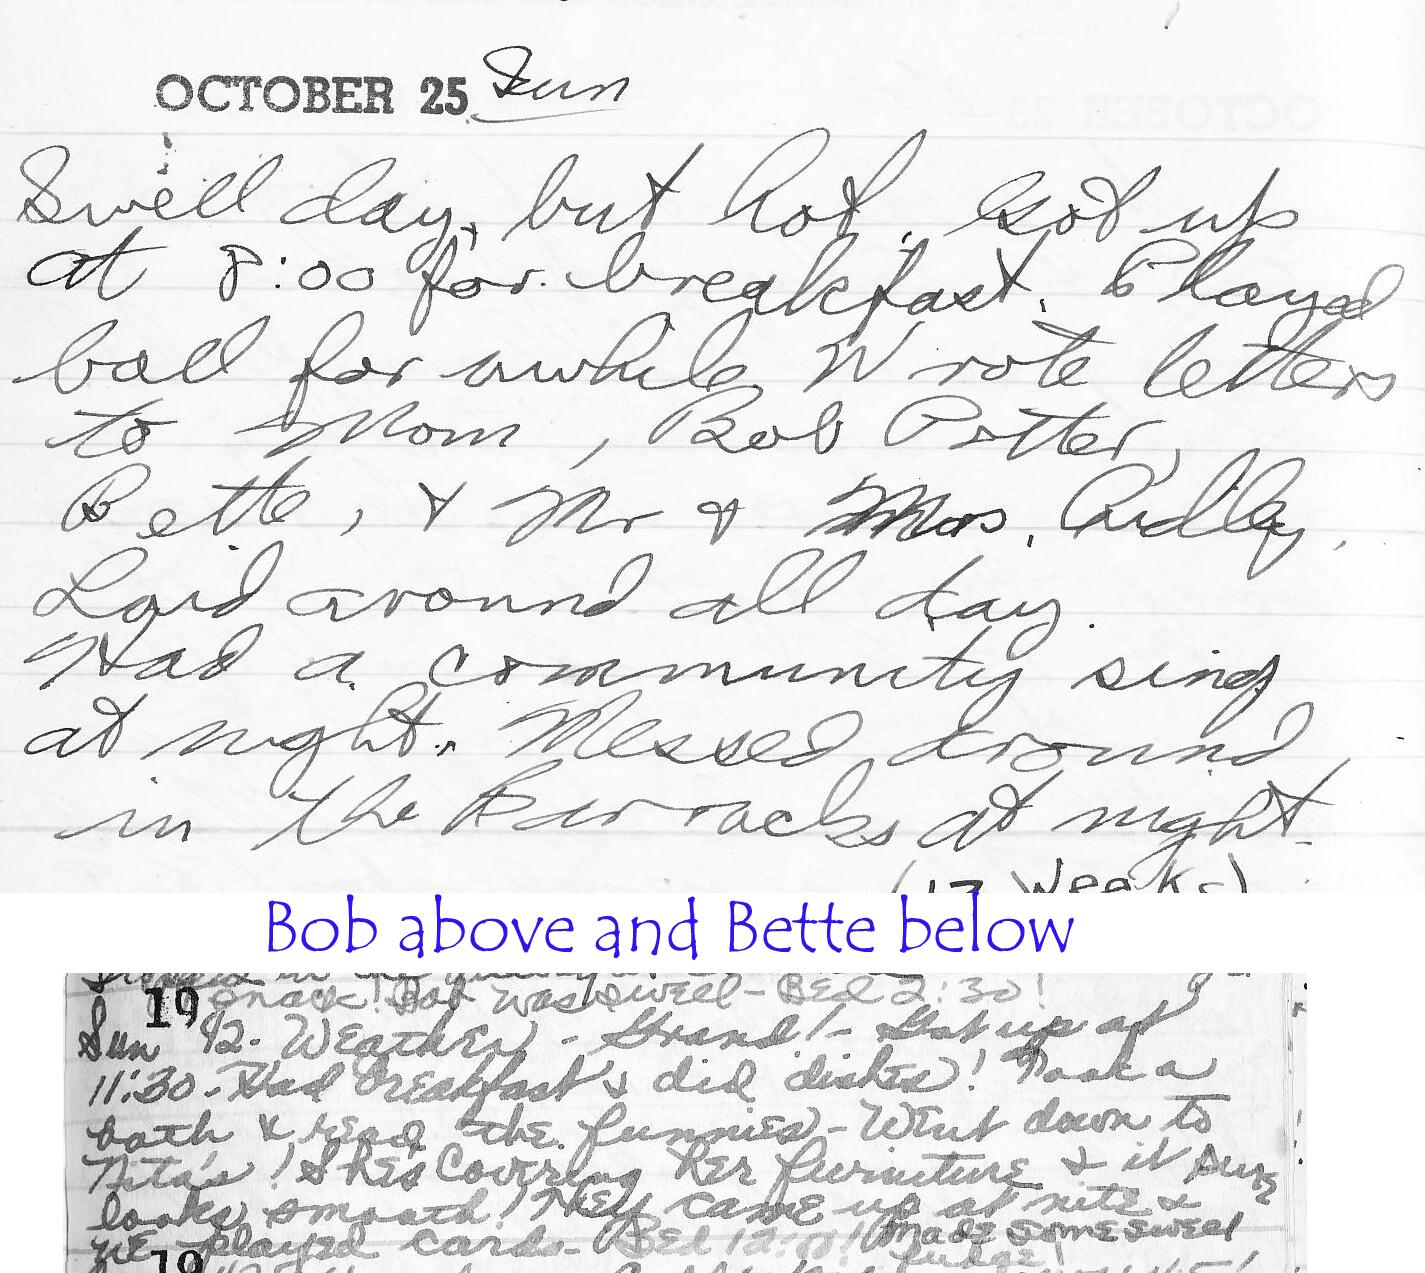 OCTOBER 25 Sun
Swell day, but hot. Got up
at 8:00 for breakfast. Played
ball for awhile. Wrote letters
to Mom, Bob Potter,
Bette, & Mr & Mrs. Audley.
Laid around all day.
Had a community sing
at night. Messed around
in the Barracks at night.
(17 Weeks)
Bob above and Bette below
snack! Bob was swell - Bed 2:30!
19
Sun 42. Weather - Grand! - Got up at
11:30 - Had breakfast & did dishes! Took a
bath & read the funnies - Went down to
Nita's! She's covering her furniture & it sure
looks smooth! They came up at nite &
we played cards - Bed 12:
made some swell
fudge!
19